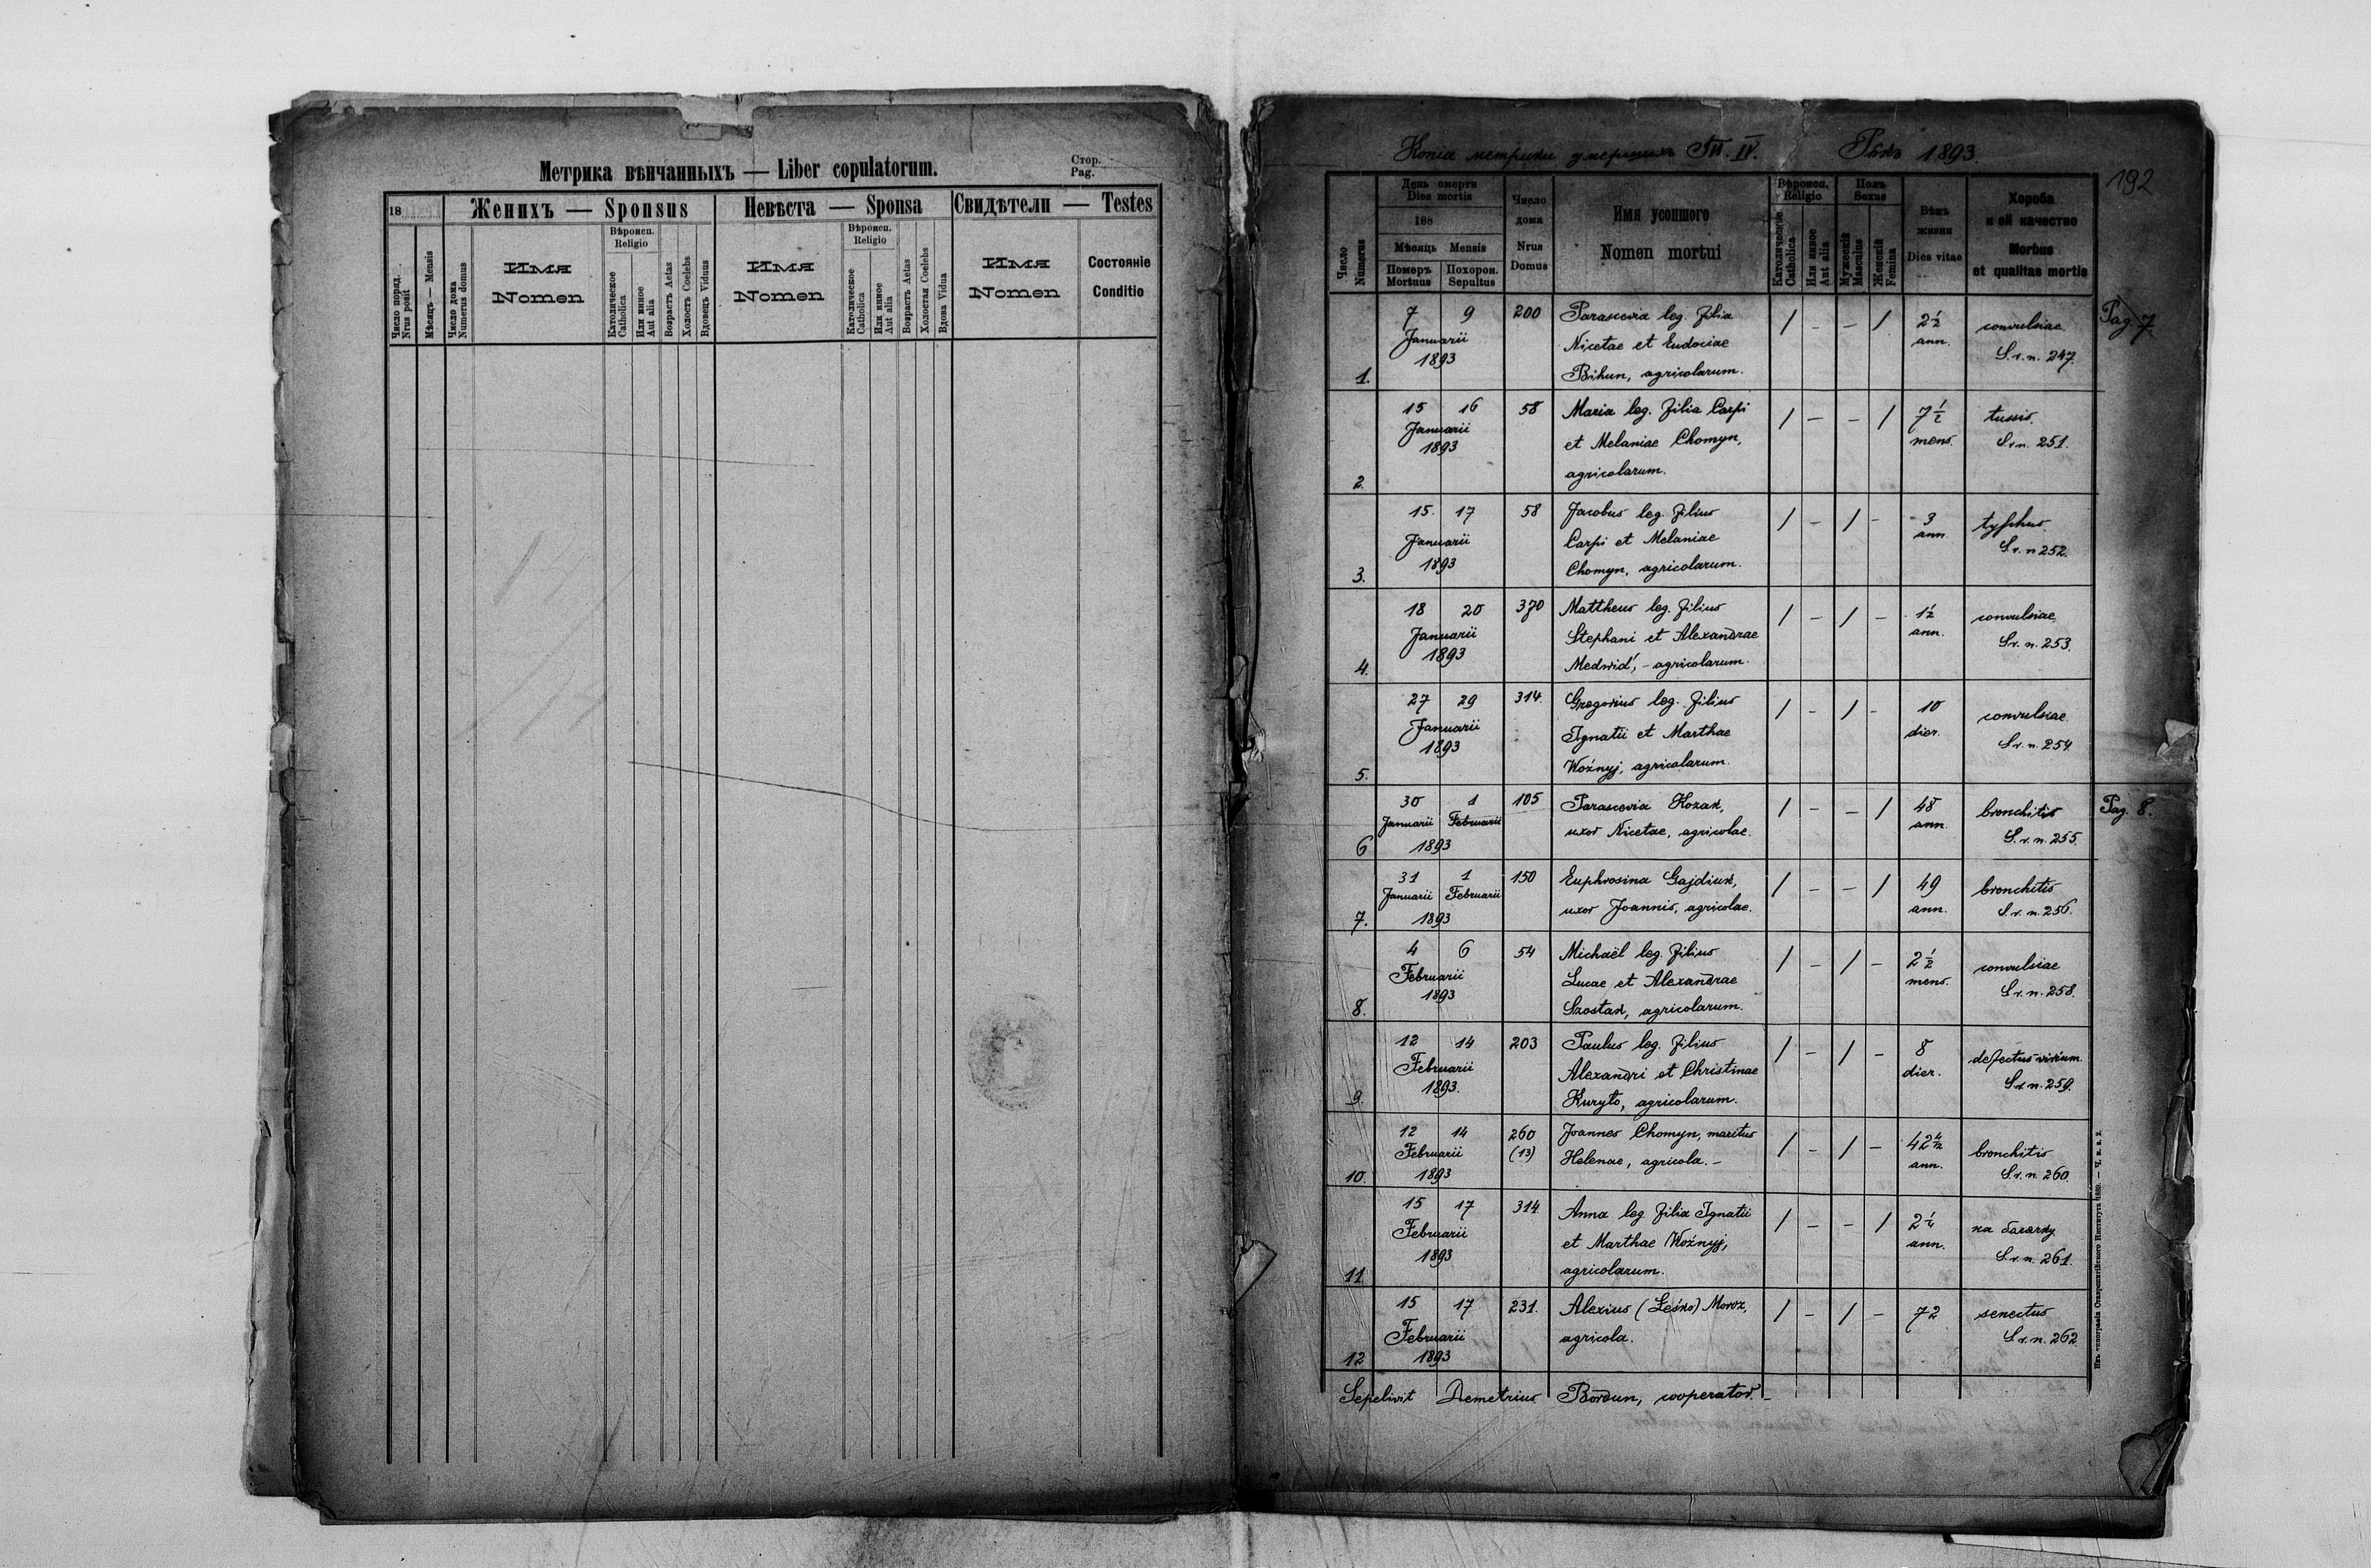 Метрика вѣнчанныхъ — Liber copulatorum.
Стор.
Pag.
18
Женихъ — Sponsus
Невѣста — Sponsa
Свидѣтели — Testes
Число поряд.
Nrus posit
Мѣсяць — Mensis
Число дома
Numerus domus
Имя
Nomen
Вѣроисп.
Religio
Католическое
Catholica
Или инное
Aut alia
Возрастъ Aetas
Холостъ Coelebs
Вдовецъ Viduus
Имя
Nomen
Вѣроисп.
Religio
Католическое
Catholica
Или инное
Aut alia
Возрастъ Aetas
Холостая Coelebs
Вдова Vidua
Имя
Nomen
Состояніе
Conditio
Копія метрики умершихъ IV. Рокъ 1893.
192
Число
Numerus
День смерти
Dies mortis
188
Мѣсяць Mensis
Померъ
Mortuus
Похорон.
Sepultus
Число
дома
Nrus
Domus
Имя усопшого
Nomen mortui
Вѣроисп.
Religio
Католическое
Catholica
Или инное
Aut alia
Полъ
Sexus
Мужескій
Masculus
Женскій
Femina
Вѣкъ
жизни
Dies vitae
Хороба
и ей качество
Morbus
et qualitas mortis
1.
7 9
Januarii
1893
200
Parascevia leg. filia
Nicetae et Eudociae
Bihun, agricolarum.
/ - - /
2 1/2
ann.
convulsiae.
S.r.n. 247.
Pag. 7
2.
15 16
Januarii
1893
58
Maria leg. filia Carpi
et Melaniae Chomyn,
agricolarum.
/ - - /
7 1/2
mens.
tussis.
S.r.n. 251.
3.
15. 17
Januarii
1893
58
Jacobus leg. filius
Carpi et Melaniae
Chomyn, agricolarum.
/ - / -
3
ann.
typhus
S.r.n 252.
4.
18 20
Januarii
1893
370
Mattheus leg. filius
Stephani et Alexandrae
Medwid', - agricolarum.
/ - / -
1 1/2
ann.
convulsiae
S.r.n. 253.
5.
27 29
Januarii
1893
314.
Gregorius leg. filius
Ignatii et Marthae
Woźnyj, agricolarum.
/ - / -
10
dier.
convulsiae.
S.r.n. 254.
6
30 1
Januarii Februarii
1893
105
Parascevia Kozak,
uxor Nicetae, agricolae.
/ - - /
48
ann.
bronchitis
S.r.n. 255.
Pag. 8.
7.
31 1
Januarii Februarii
1893
150
Euphrosina Gajdiuk,
uxor Joannis, agricolae.
/ - - /
49
ann.
bronchitis
S.r.n. 256.
8.
4 6
Februarii
1893
54
Michaël leg. filius
Lucae et Alexandrae
Szostak, agricolarum.
/ - / -
2 1/2
mens.
convulsiae
S.r.n. 258.
9.
12 14
Februarii
1893.
203
Paulus leg. filius
Alexandri et Christinae
Kuryło, agricolarum.
/ - / -
8
dier.
defectus virium.
S.r.n. 259.
10.
12 14
Februarii
1893
260
(13)
Joannes Chomyn, maritus
Helenae, agricola. -
/ - / -
42
ann.
bronchitis
S.r.n. 260.
11.
15 17
Februarii
1893
314
Anna leg. filia Ignatii
et Marthae Woźnyj,
agricolarum.
/ - - /
2 1/4
ann.
на
S.r.n. 261.
12
15 17
Februarii
1893
231.
Alexius (Leśko) Moroz,
agricola.
/ - / -
72
senectus
S.r.n. 262
Sepelivit Demetrius Bordun, cooperator. -
Изъ типографіи Ставропигійского Института 1889. — Ч. в. з.